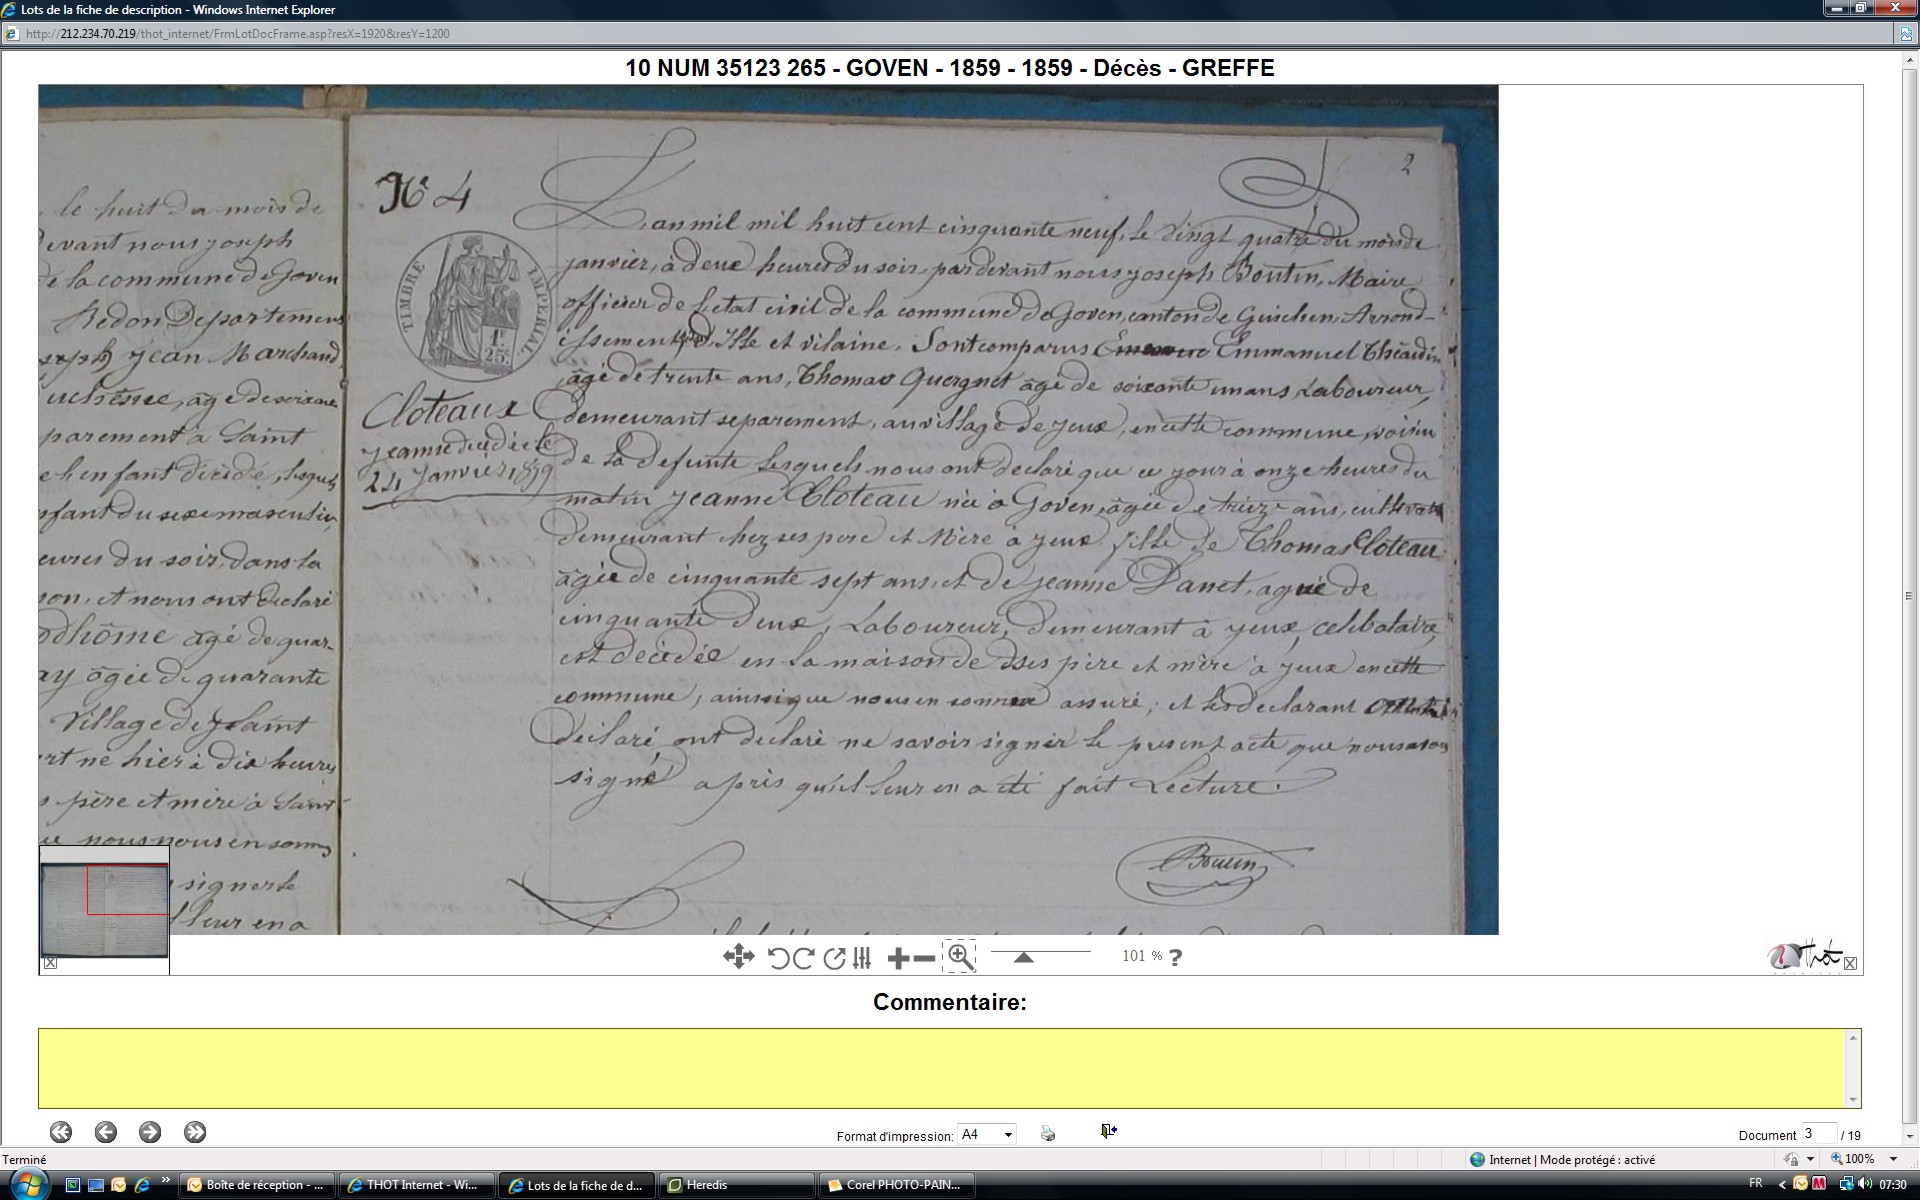 Lots de la fiche de description - Windows Internet Explorer
http://212.234.70.219/thot_internet/FrmLotDocFrame.asp?resX=1920&resY=1200
10 NUM 35123 265 - GOVEN - 1859 - 1859 - Décès - GREFFE
, le huit du mois de
devant nous joseph
de la commune de Goven
Redon Departement
joseph jean Marchand
uchesne, age de soixante
parement à Saint
enfant décidé, lesquels
nfant du sexe masculin
eures du soir, dans la
son, et nous ont declaré
odhôme agé de quar-
ay âgée de quarante
Village de Saint
rt ne hier à dix heures
s père et mère à Saint-
nous nous en somm
signer le
leur en a
2
N° 4
TIMBRE IMPÉRIAL
1f
25c.
Cloteaux
jeanne decidée le
24 janvier 1859
L'an mil mil huit cent cinquante neuf, le vingt quatre du mois de
janvier, à deux heures du soir, par devant nous joseph Boutin, Maire
officier de l'etat civil de la commune de Goven, canton de Guichen, Arrond-
issement d'Ille et vilaine. Sont comparus Emmanuel Théaudin
âgé de trente ans, Thomas Quergnet âgé de soixante un ans, Laboureur,
demeurant separement, au village de yeux, en cette commune, voisin
de la defunte lesquels nous ont declaré que ce jour à onze heures du
matin jeanne Cloteau née à Goven, âgée de treize ans,
demeurant chez ses pere et Mère à yeux fille de Thomas Cloteau
âgée de cinquante sept ans, et de jeanne Danet, aguée de
cinquante deux, Laboureur, demeurant à yeux, celibataire,
est décédée en la maison de dses père et mère à yeux en cette
commune, ainsi que nous en somme assuré, et les declarant
déclaré, ont declaré ne savoir signer le present acte que nous avons
signé après qu'il leur en a été fait Lecture.
Boutin
101 %
?
Thot
Commentaire:
Format d'impression: A4
Document 3 / 19
Terminé
Internet | Mode protégé : activé
100%
Boîte de réception - ...
THOT Internet - Wi...
Lots de la fiche de d...
Heredis
Corel PHOTO-PAIN...
FR
07:30